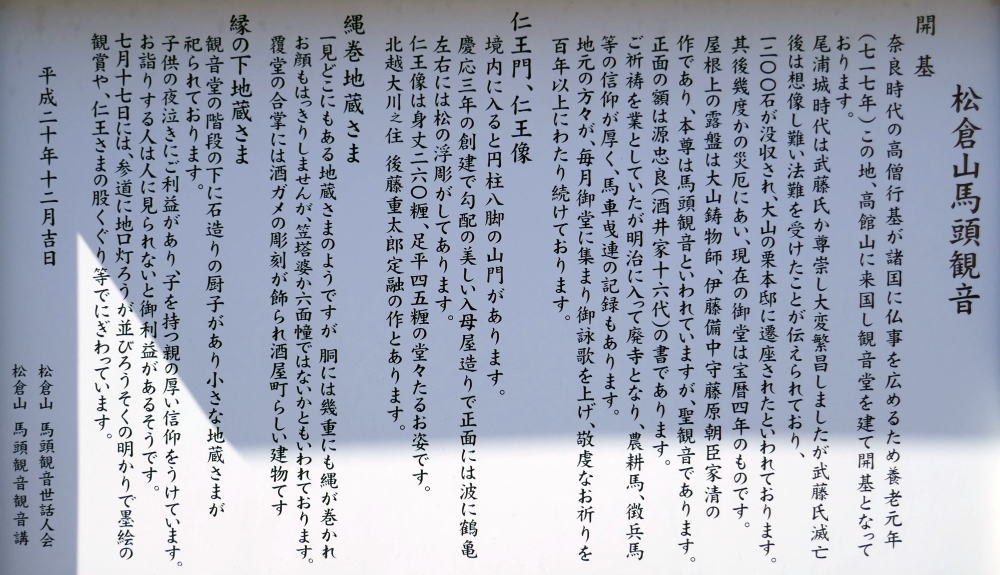 松倉山馬頭観音
開基
奈良時代の高僧行基が諸国に仏事を広めるため養老元年
(七一七年)この地、高館山に来国し観音堂を建て開基となって
おります。
尾浦城時代は武藤氏か尊崇し大変繁昌しましたが武藤氏滅亡
後は想像し難い法難を受けたことが伝えられており、
一二〇〇石が没収され、大山の栗本邸に遷座されたといわれております。
其後幾度かの災厄にあい、現在の御堂は宝暦四年のものです。
屋根上の露盤は大山鋳物師、伊藤備中守藤原朝臣家清の
作であり、本尊は馬頭観音といわれていますが、聖観音であります。
正面の額は源忠良(酒井家十六代)の書であります。
ご祈祷を業としていたが明治に入って廃寺となり、農耕馬、徴兵馬
等の信仰が厚く、馬車曳連の記録もあります。
地元の方々が、毎月御堂に集まり御詠歌を上げ、敬虔なお祈りを
百年以上にわたり続けております。
仁王門、仁王像
境内に入ると円柱八脚の山門があります。
慶応三年の創建で勾配の美しい入母屋造りで正面には波に鶴亀
左右には松の浮彫がしてあります。
仁王像は身丈二六〇糎、足平四五糎の堂々たるお姿です。
北越大川之住 後藤重太郎定融の作とあります。
縄巻地蔵さま
一見どこにもある地蔵さまのようですが 胴には幾重にも縄が巻かれ
お顔もはっきりしませんが、笠塔婆か六面幢ではないかともいわれております。
覆堂の合掌には酒ガメの彫刻が飾られ酒屋町らしい建物です
縁の下地蔵さま
観音堂の階段の下に石造りの厨子があり小さな地蔵さまが
祀られております。
子供の夜泣きにご利益があり子を持つ親の厚い信仰をうけています。
お詣りする人は人に見られないと御利益があるそうです。
七月十七日には、参道に地口灯ろうが並びろうそくの明かりで墨絵の
観賞や、仁王さまの股くぐり等でにぎわっています。
平成二十年十二月吉日
松倉山 馬頭観音世話人会
松倉山 馬頭観音観音講